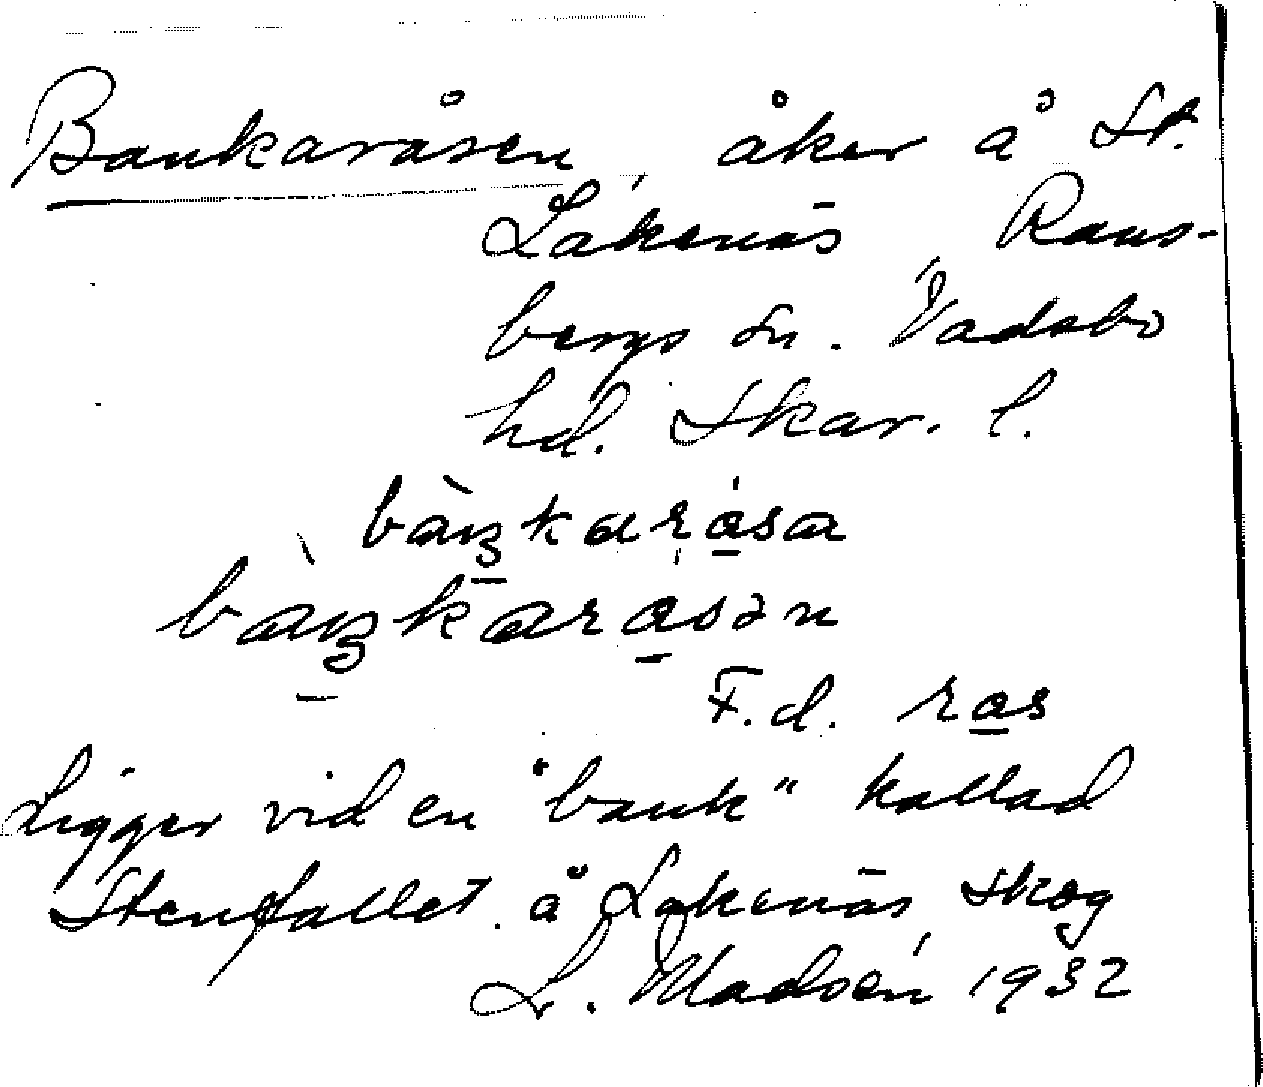 Bankaråsen, åker å St.
Låkenäs, Rans-
bergs sn. Vadsbo
hd. Skar. l.
bàŋkarása
bàŋkarásən
F.d. ras
Ligger vid en "bank" kallad
Stenfallet å Låkenäs skog
L. Madsén 1932